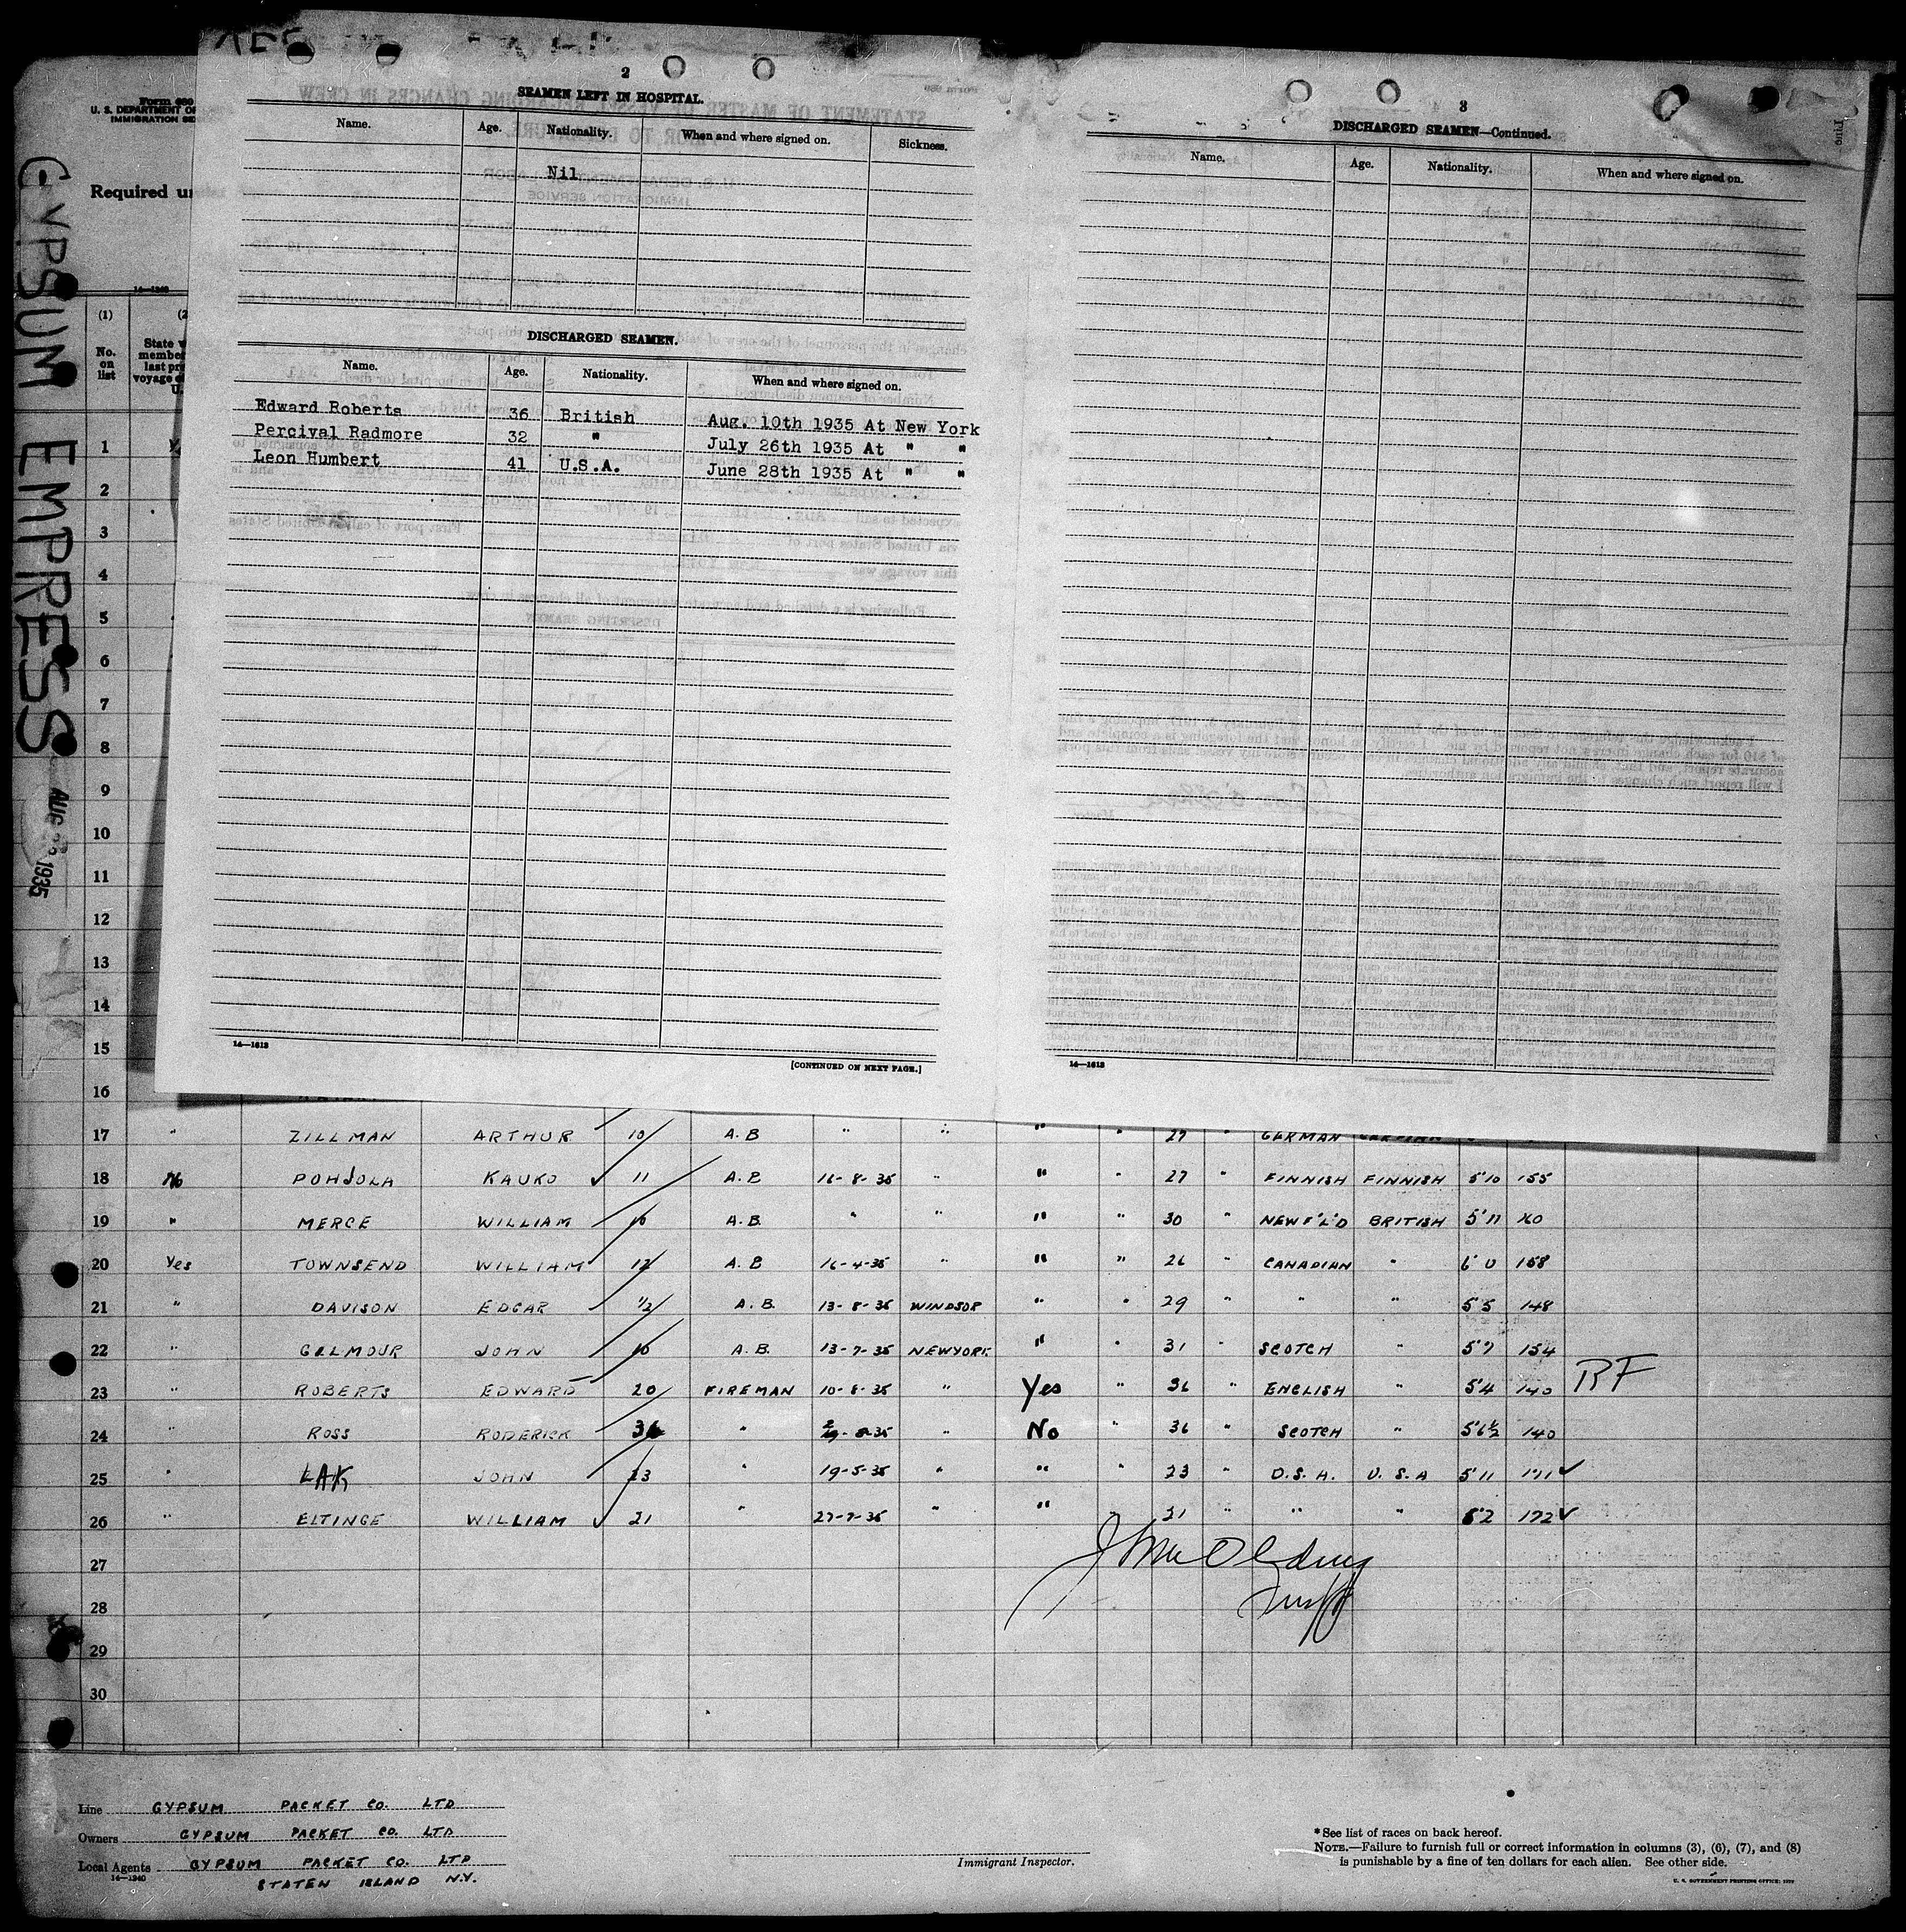 GYPSUM EMPRESS
AUG 1935
Form 680
U. S. DEPARTMENT OF
IMMIGRATION SE
Required un
14—1240
(1)
No. on list
State w
member
last pre
voyage
U.
2
SEAMEN LEFT IN HOSPITAL.
Name. Age. Nationality. When and where signed on. Sickness.
Nil
DISCHARGED SEAMEN.
Name. Age. Nationality. When and where signed on.
Edward Roberts 36 British Aug. 10th 1935 At New York
Percival Radmore 32 " July 26th 1935 At " "
Leon Humbert 41 U.S.A. June 28th 1935 At " "
14—1613
[CONTINUED ON NEXT PAGE.]
3
DISCHARGED SEAMEN—Continued.
Name. Age. Nationality. When and where signed on.
14—1613
1
2
3
4
5
6
7
8
9
10
11
12
13
14
15
16
17 " ZILLMAN ARTHUR 10 A.B " " " " 27 " GERMAN
18 No POHJOLA KAUKO 11 A.B 16-8-35 " " " 27 " FINNISH FINNISH 5'10 155
19 " MERCE WILLIAM 10 A.B. " " " " 30 " NEWF'L'D BRITISH 5'11 160
20 Yes TOWNSEND WILLIAM 12 A.B 16-4-35 " " " 26 " CANADIAN " 6'0 158
21 " DAVISON EDGAR 1/2 A.B. 13-8-35 WINDSOR " " 29 " " 5'5 148
22 " GILMOUR JOHN 10 A.B. 13-7-35 NEWYORK " " 31 " SCOTCH " 5'7 154
23 " ROBERTS EDWARD 20 FIREMAN 10-8-35 " Yes " 36 " ENGLISH " 5'4 140 RF
24 " ROSS RODERICK 36 " " No " 36 " SCOTCH " 5'6½ 140
25 " LAK JOHN 23 " 19-5-35 " " " 23 " U.S.A. U.S.A 5'11 171
26 " ELTINGE WILLIAM 21 " 27-7-35 " " 21 " " " 5'2 172
27
28
29
30
Line GYPSUM PACKET CO. LTD
Owners GYPSUM PACKET CO. LTD
Local Agents GYPSUM PACKET CO. LTD
14—1240
STATEN ISLAND N.Y.
Immigrant Inspector.
*See list of races on back hereof.
NOTE.—Failure to furnish full or correct information in columns (3), (6), (7), and (8)
is punishable by a fine of ten dollars for each alien. See other side.